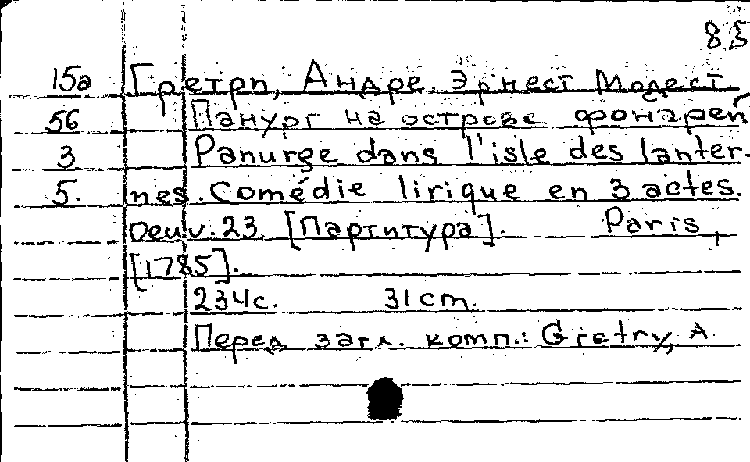 85
15а Гретри, Андре Эрнест Модест
56 Панург на острове фонарей
3 Panurge dans l'isle des lanter-
5. nes. Comédie lirique en 3 actes.
Oeuv. 23. [Партитура]. Paris,
[1785].
234с. 31cm.
Перед загл. комп.: Gretry, A.